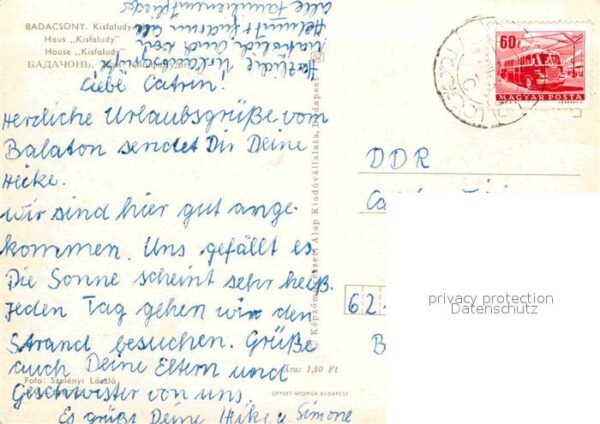 BADACSONY. Kisfaludy-
Haus „Kisfaludy"
House „Kisfaludy"
БАДАЧОНЬ.
Herzliche Urlaubsgrüße
natürlich auch von
Helmut
alle Familienmitglieder
Liebe Catrin!
Herzliche Urlaubsgrüße vom
Balaton sendet Dir Deine
Heike.
Wir sind hier gut ange-
kommen. Uns gefällt es.
Die Sonne scheint sehr heiß.
Jeden Tag gehen wir den
Strand besuchen. Grüße
auch Deine Eltern und
Geschwister von uns.
Es grüßt Deine Heike u Simone
Foto: Szelényi László
Képzőművészeti Alap Kiadóvállalata, Budapest
Ára: 1,50 Ft
OFFSET-NYOMDA BUDAPEST
60f
MAGYAR POSTA
DDR
62
B
privacy protection
Datenschutz